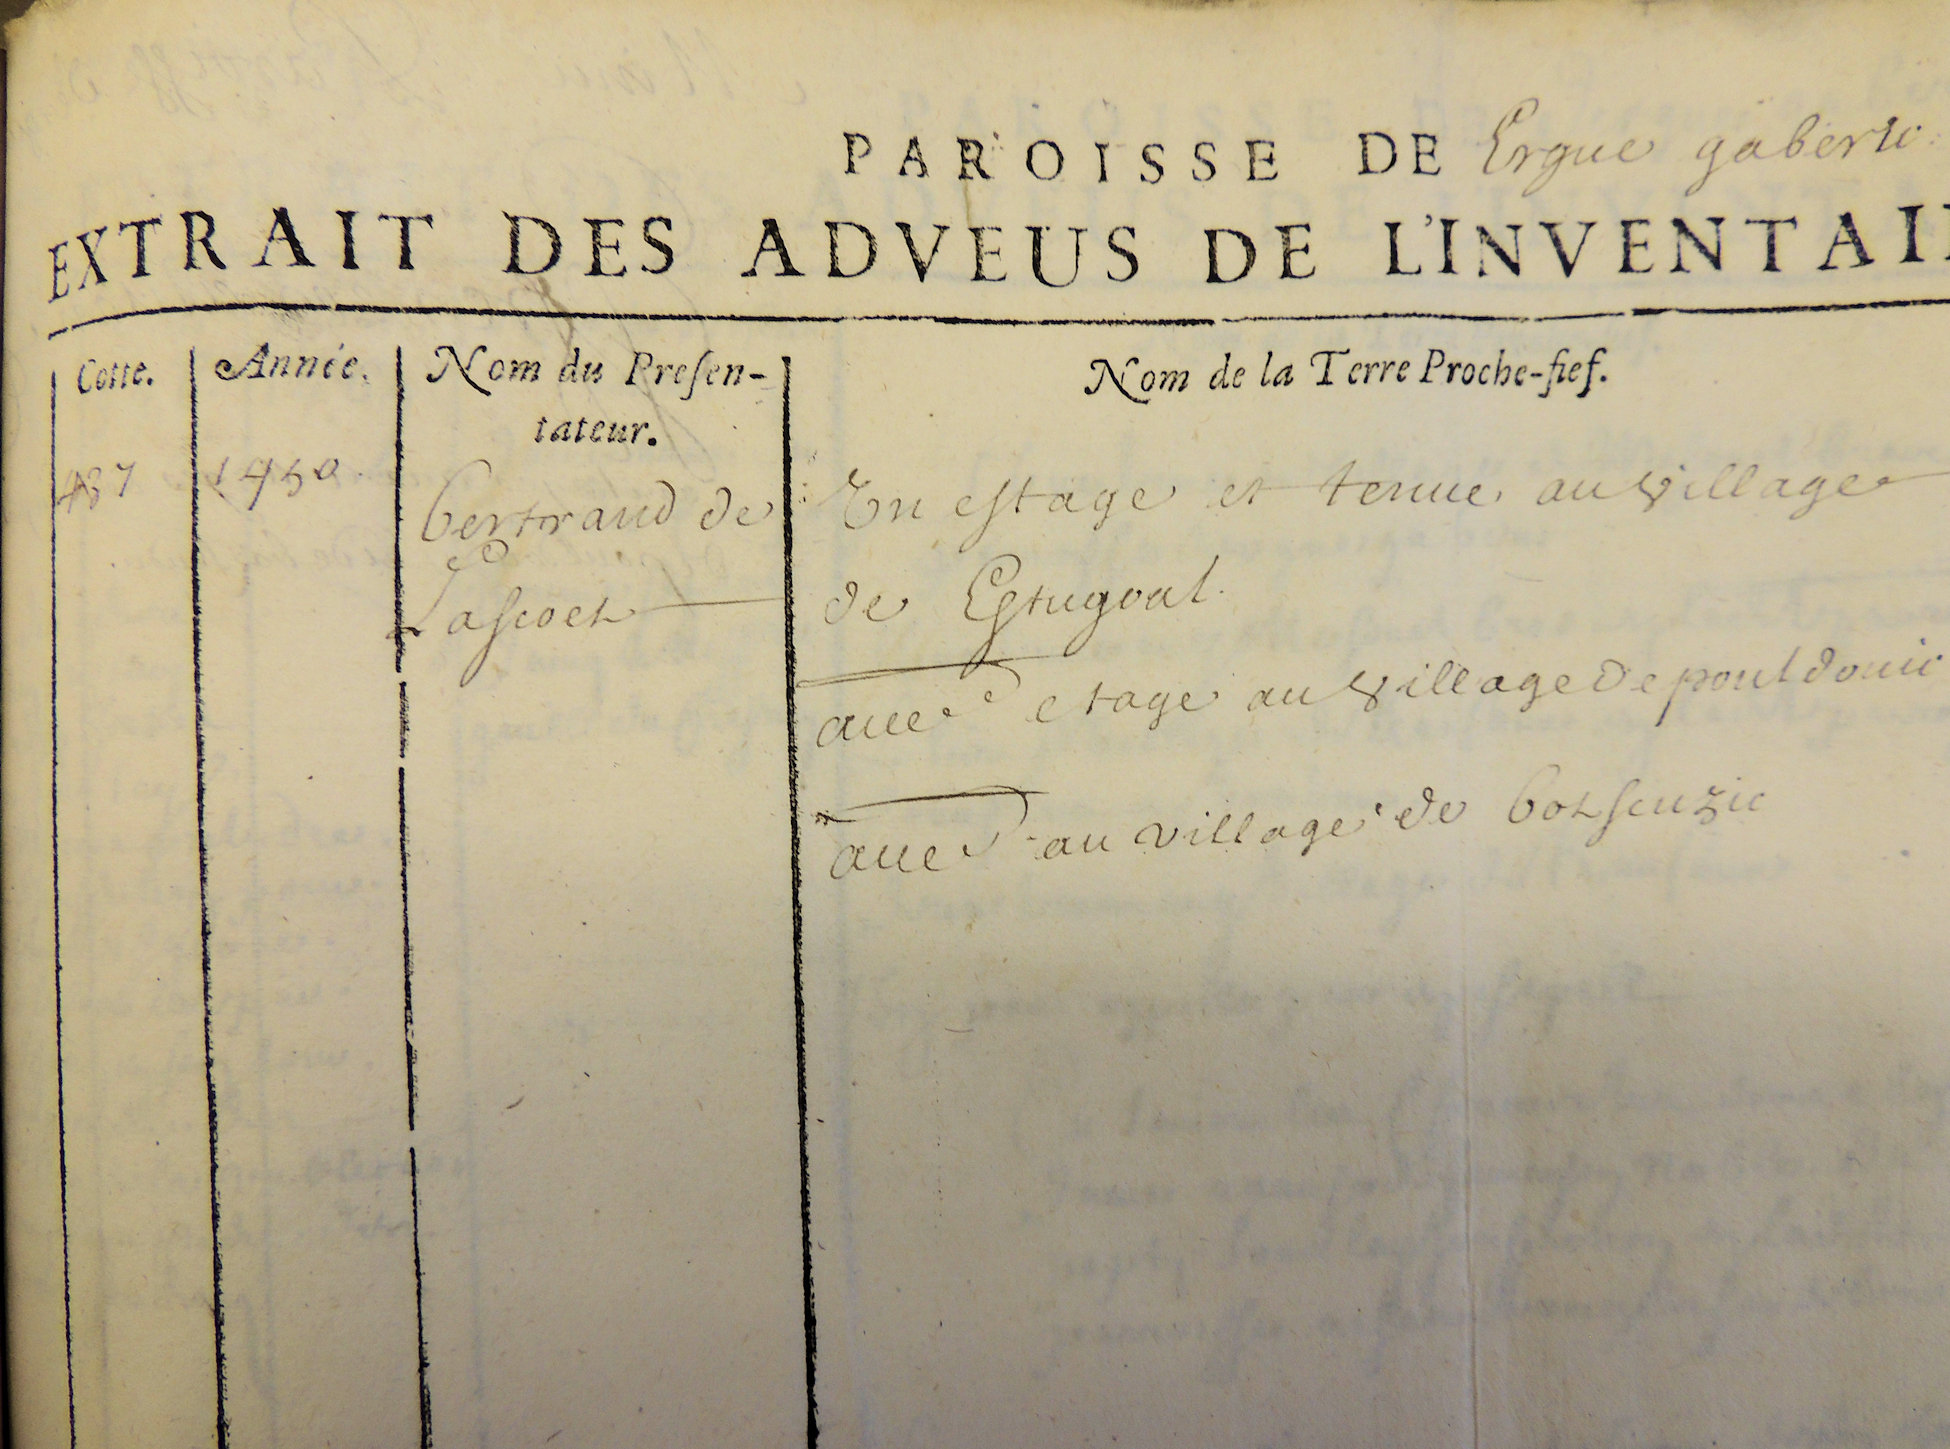 PAROISSE DE Ergue gaberic
EXTRAIT DES ADVEUS DE L'INVENTAI
Cotte. Année. Nom du Presen-
tateur. Nom de la Terre Proche-fief.
487 1450. bertrand de
Lascoet
Un estage et tenue au village
de Estugoal.
etage au village de pouldouic
au village de botscuzic